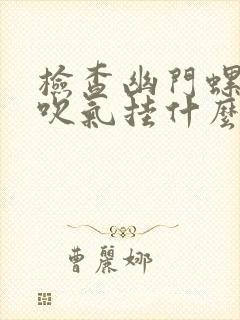 檢查幽門螺
吹氣挂什麼
曹麗娜